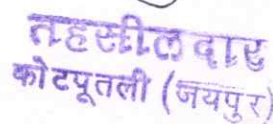 तहसीलदार
कोटपूतली (जयपुर)